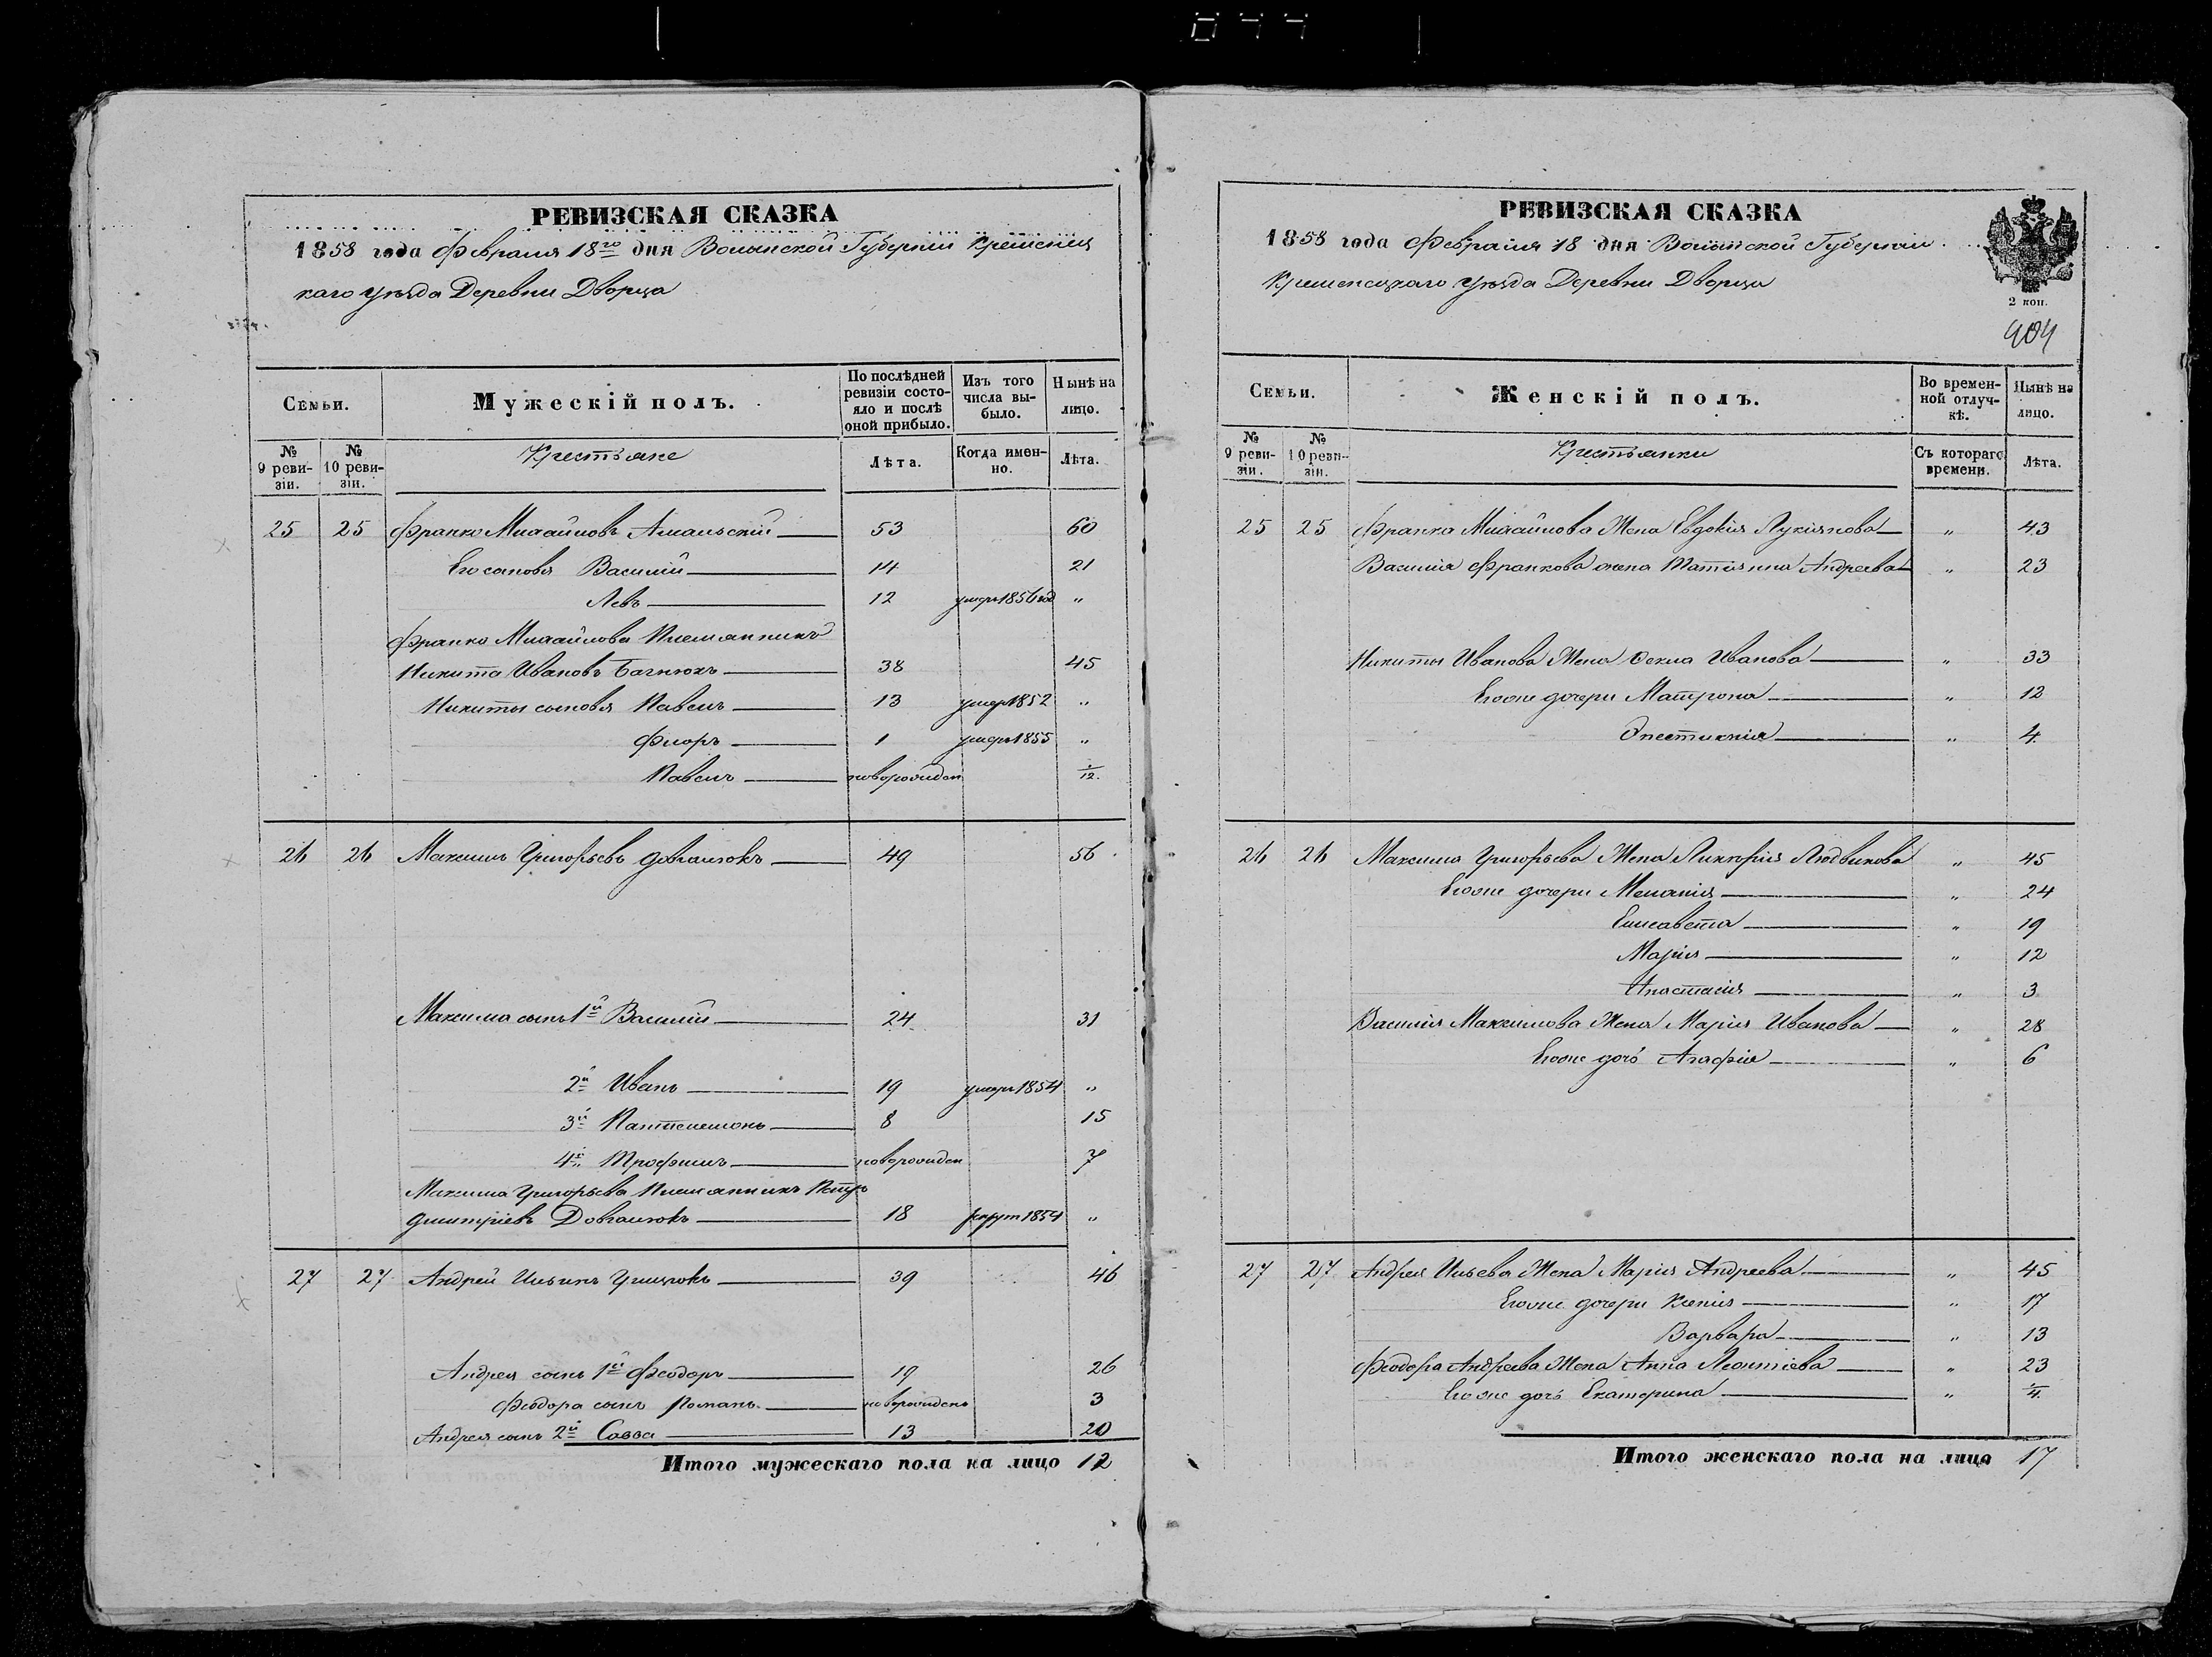 РЕВИЗСКАЯ СКАЗКА
1858 года Февраля 18го дня Волынской Губерніи Кременец
каго уѣзда Деревни Дворца
Семьи.
Мужескій полъ.
По послѣдней ревизіи состояло и послѣ оной прибыло.
Изъ того числа выбыло.
Нынѣ на лицо.
№ 9 ревизіи.
№ 10 ревизіи.
Крестьяне
Лѣта.
Когда именно.
Лѣта.
25 25 Франко Михайловъ 53 60
Его сыновя Василій 14 21
Левъ 12 умеръ 1856 год "
Франко Михайлова Племянникъ
Никита Ивановъ Багнюкъ 38 45
Никиты сыновя Павелъ 13 умер 1852 "
Флоръ 1 умеръ 1855 "
Павелъ новорожден 1/12.
26 26 Максимъ Григорьевъ Довгалюкъ 49 56
Максима сынъ 1й Василій 24 31
2й Иванъ 19 умеръ 1854 "
3й Пантелемонъ 8 15
4й Трофимъ новорожден 7
Максима Григорьева Племянникъ Петръ
Дмитріевъ Довгалюкъ 18 рекрут 1854 "
27 27 Андрей Ильинъ 39 46
Андрея сынъ 1й Феодоръ 19 26
Феодора сынъ Романъ новорожденъ 3
Андрея сынъ 2й Савва 13 20
Итого мужескаго пола на лицо 12
РЕВИЗСКАЯ СКАЗКА
1858 года Февраля 18 дня Волынской Губерніи
Кременецкаго уѣзда Деревни Дворца
2 коп.
404
Семьи.
Женскій полъ.
Во временной отлучкѣ.
Нынѣ на лицо.
№ 9 ревизіи.
№ 10 ревизіи.
Крестьянки
Съ котораго времени.
Лѣта.
25 25 Франка Михайлова Жена Евдокія Лукіянова " 43
Василія Франкова жена Татіянна Андреева " 23
Никиты Иванова Жена Ѳекла Иванова " 33
Егоже дочери Матрона " 12
" 4
26 26 Максима Григорьева Жена Людвикова " 45
Егоже дочери Меланія " 24
Елисавета " 19
Марія " 12
Анастасія " 3
Василія Максимова Жена Марія Иванова " 28
Егоже дочь Агафія " 6
27 27 Андрея Ильева Жена Марія Андреева " 45
Егоже дочери Ксенія " 17
Варвара " 13
Феодора Андреева Жена Анна Леонтіева " 23
Егоже дочь Екатерина " 1/4.
Итого женскаго пола на лицо 17